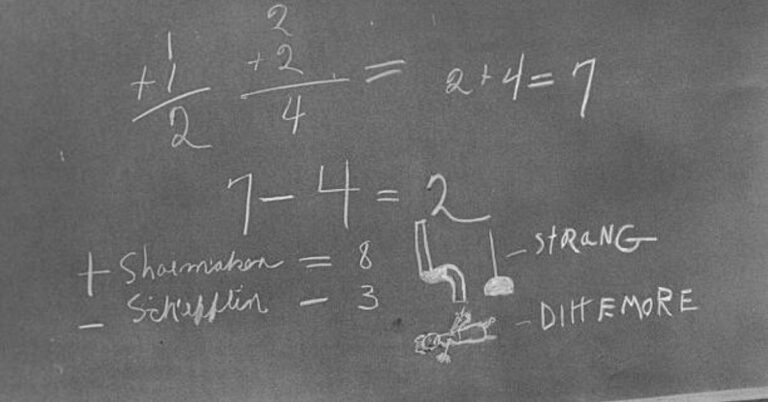 1 2
+1 +2 = 2+4=7
2 4
7-4=2
+ Shoemaker = 8
- Schifflin - 3
STRANG
DITTEMORE